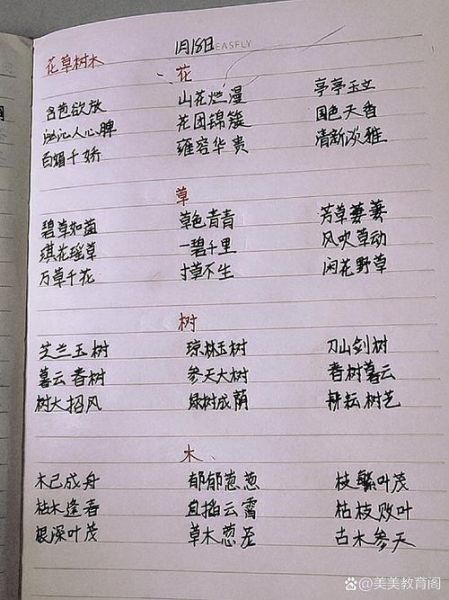 1月18日 EASFLY
花草树木
花
含苞欲放 山花烂漫 亭亭玉立
沁人心脾 花团锦簇 国色天香
百媚千娇 雍容华贵 清新淡雅
草
碧草如茵 草色青青 芳草萋萋
琪花瑶草 一碧千里 风吹草动
万草千花 寸草不生 闲花野草
树
芝兰玉树 琼林玉树 刀山剑树
暮云春树 参天大树 春树暮云
树大招风 绿树成荫 耕耘树艺
木
木已成舟 郁郁葱葱 枝繁叶茂
枯木逢春 直插云霄 枯枝败叶
根深叶茂 草木葱茏 古木参天
美美教育阁